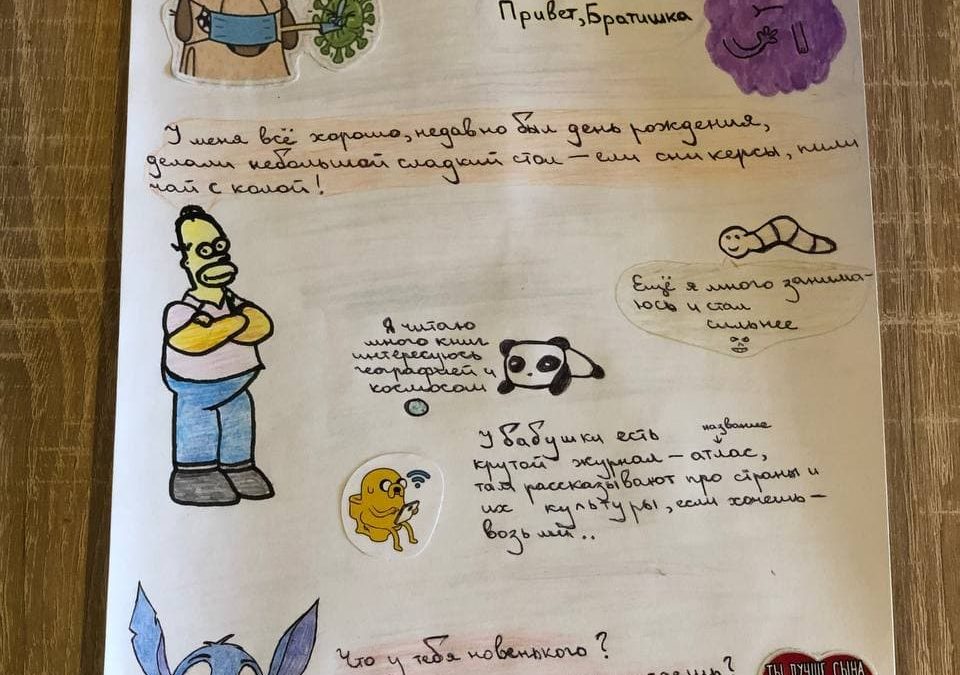 Привет, Братишка
У меня всё хорошо, недавно был день рождения,
делали небольшой сладкий стол — ели сникерсы, пили
чай с колой!
Ещё я много занима-
юсь и стал
сильнее
Я читаю
много книг
интересуюсь
географией и
космосом
У бабушки есть название
крутой журнал — атлас,
там рассказывают про страны и
их культуры, если хочешь —
возьми..
Что у тебя новенького?
ТЫ ЛУЧШЕ СЫНА